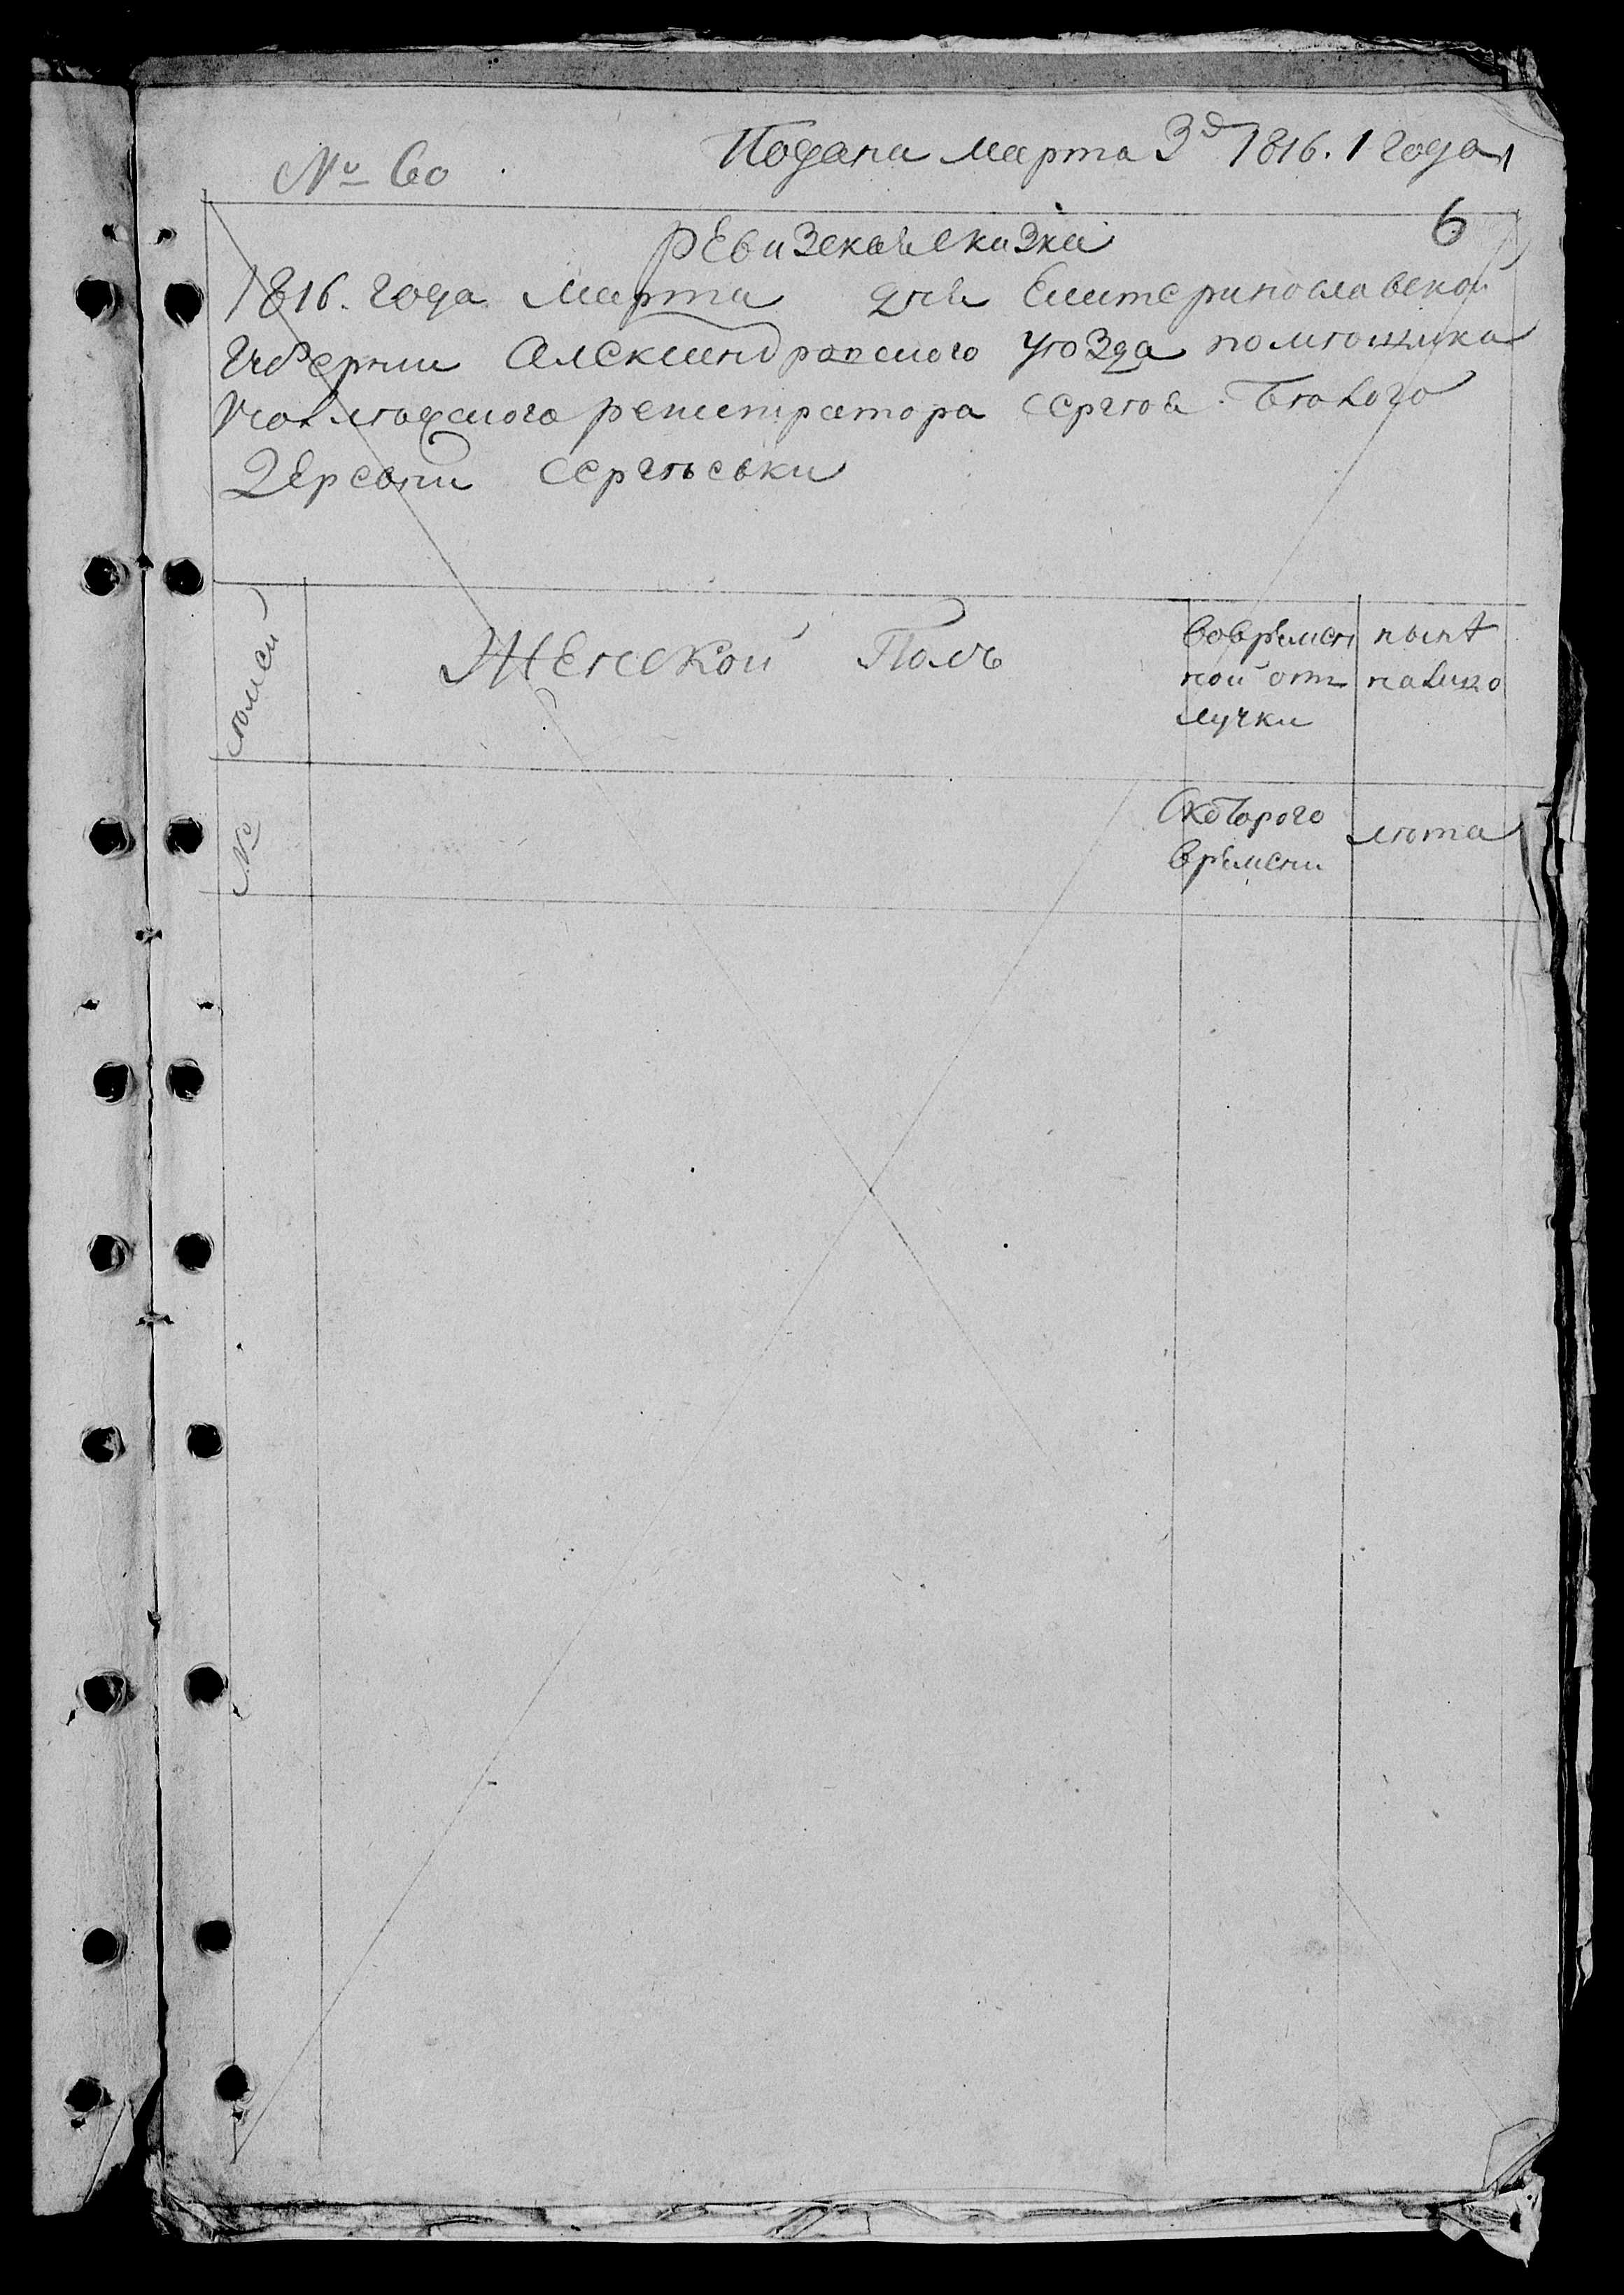 № 60
Подана марта 3д 1816. года
6
РЕвизская сказка
1816. года марта дня Екатеринославской
Губернии Александровского уѣзда помѣщика
Коллежского регистратора Сергѣя Бѣлого
Деревни Сергѣевки
семей
Женской Полъ
вовремен
ной от
лучки
нынѣ
налицо
№
Скоторого
времени
лѣта